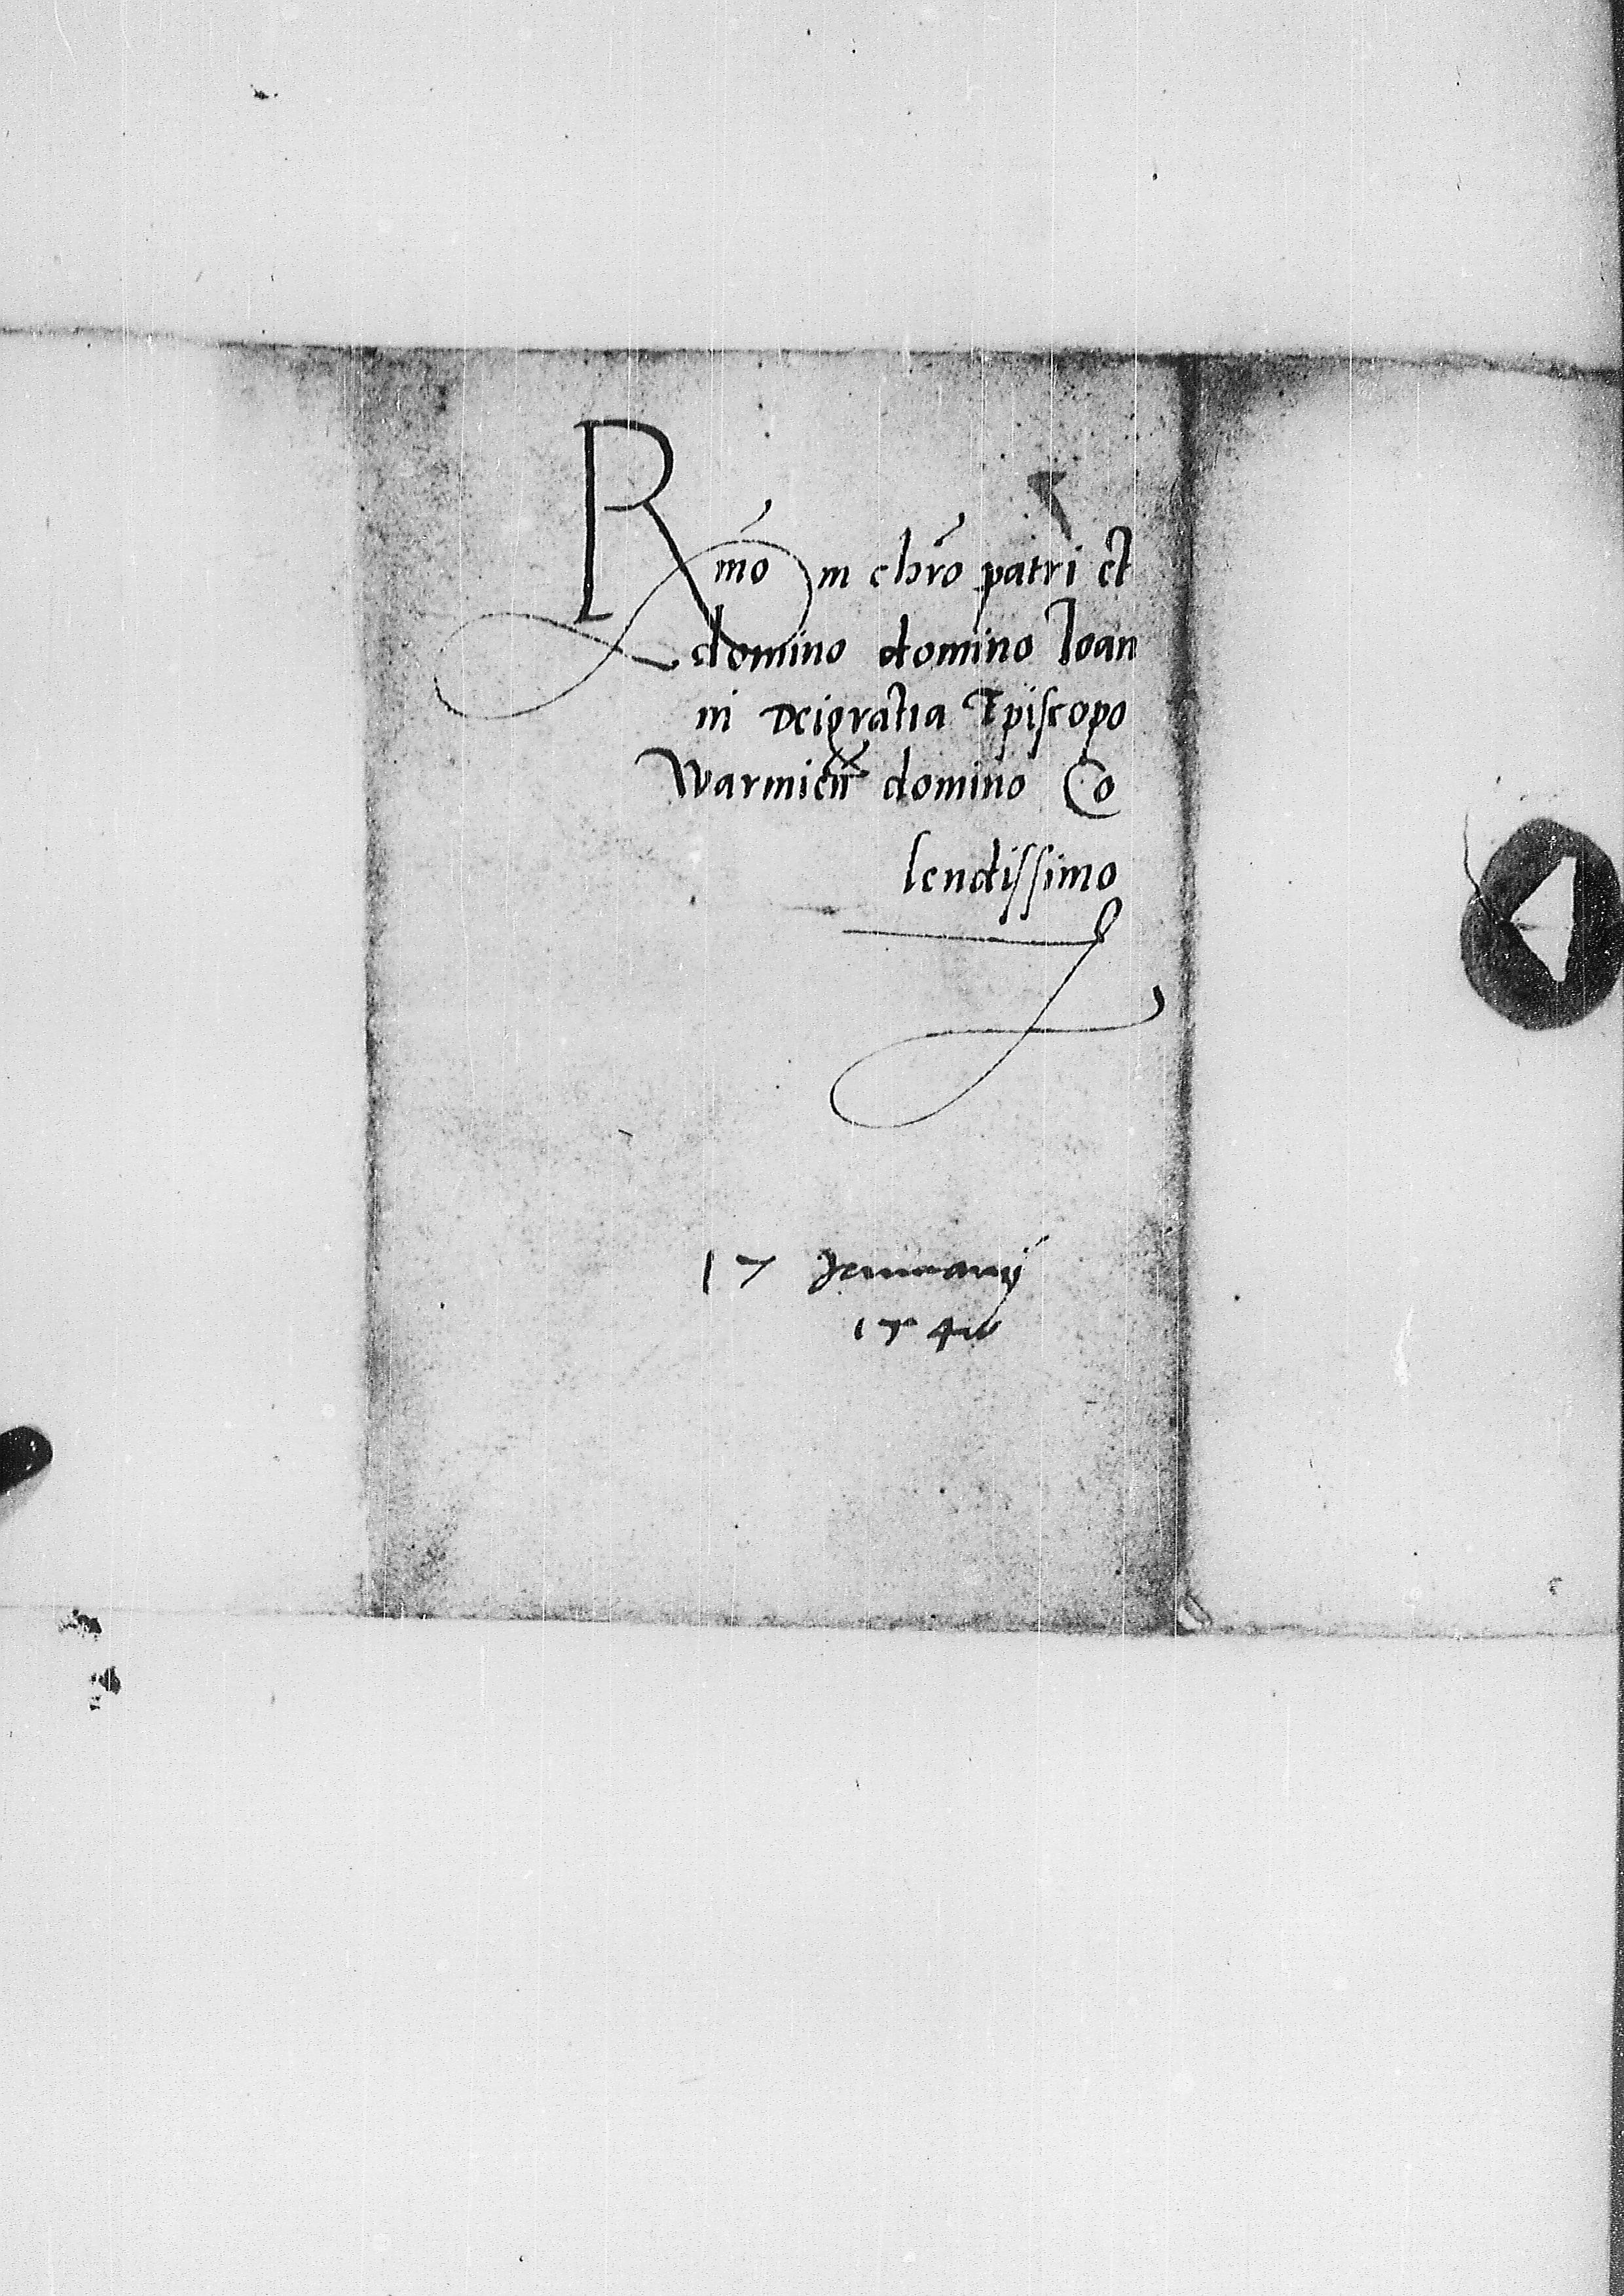 Rmo in chro patri et
domino domino Ioan
ni Dei gratia Episcopo
Warmien domino Co
lendissimo
17 Januarij